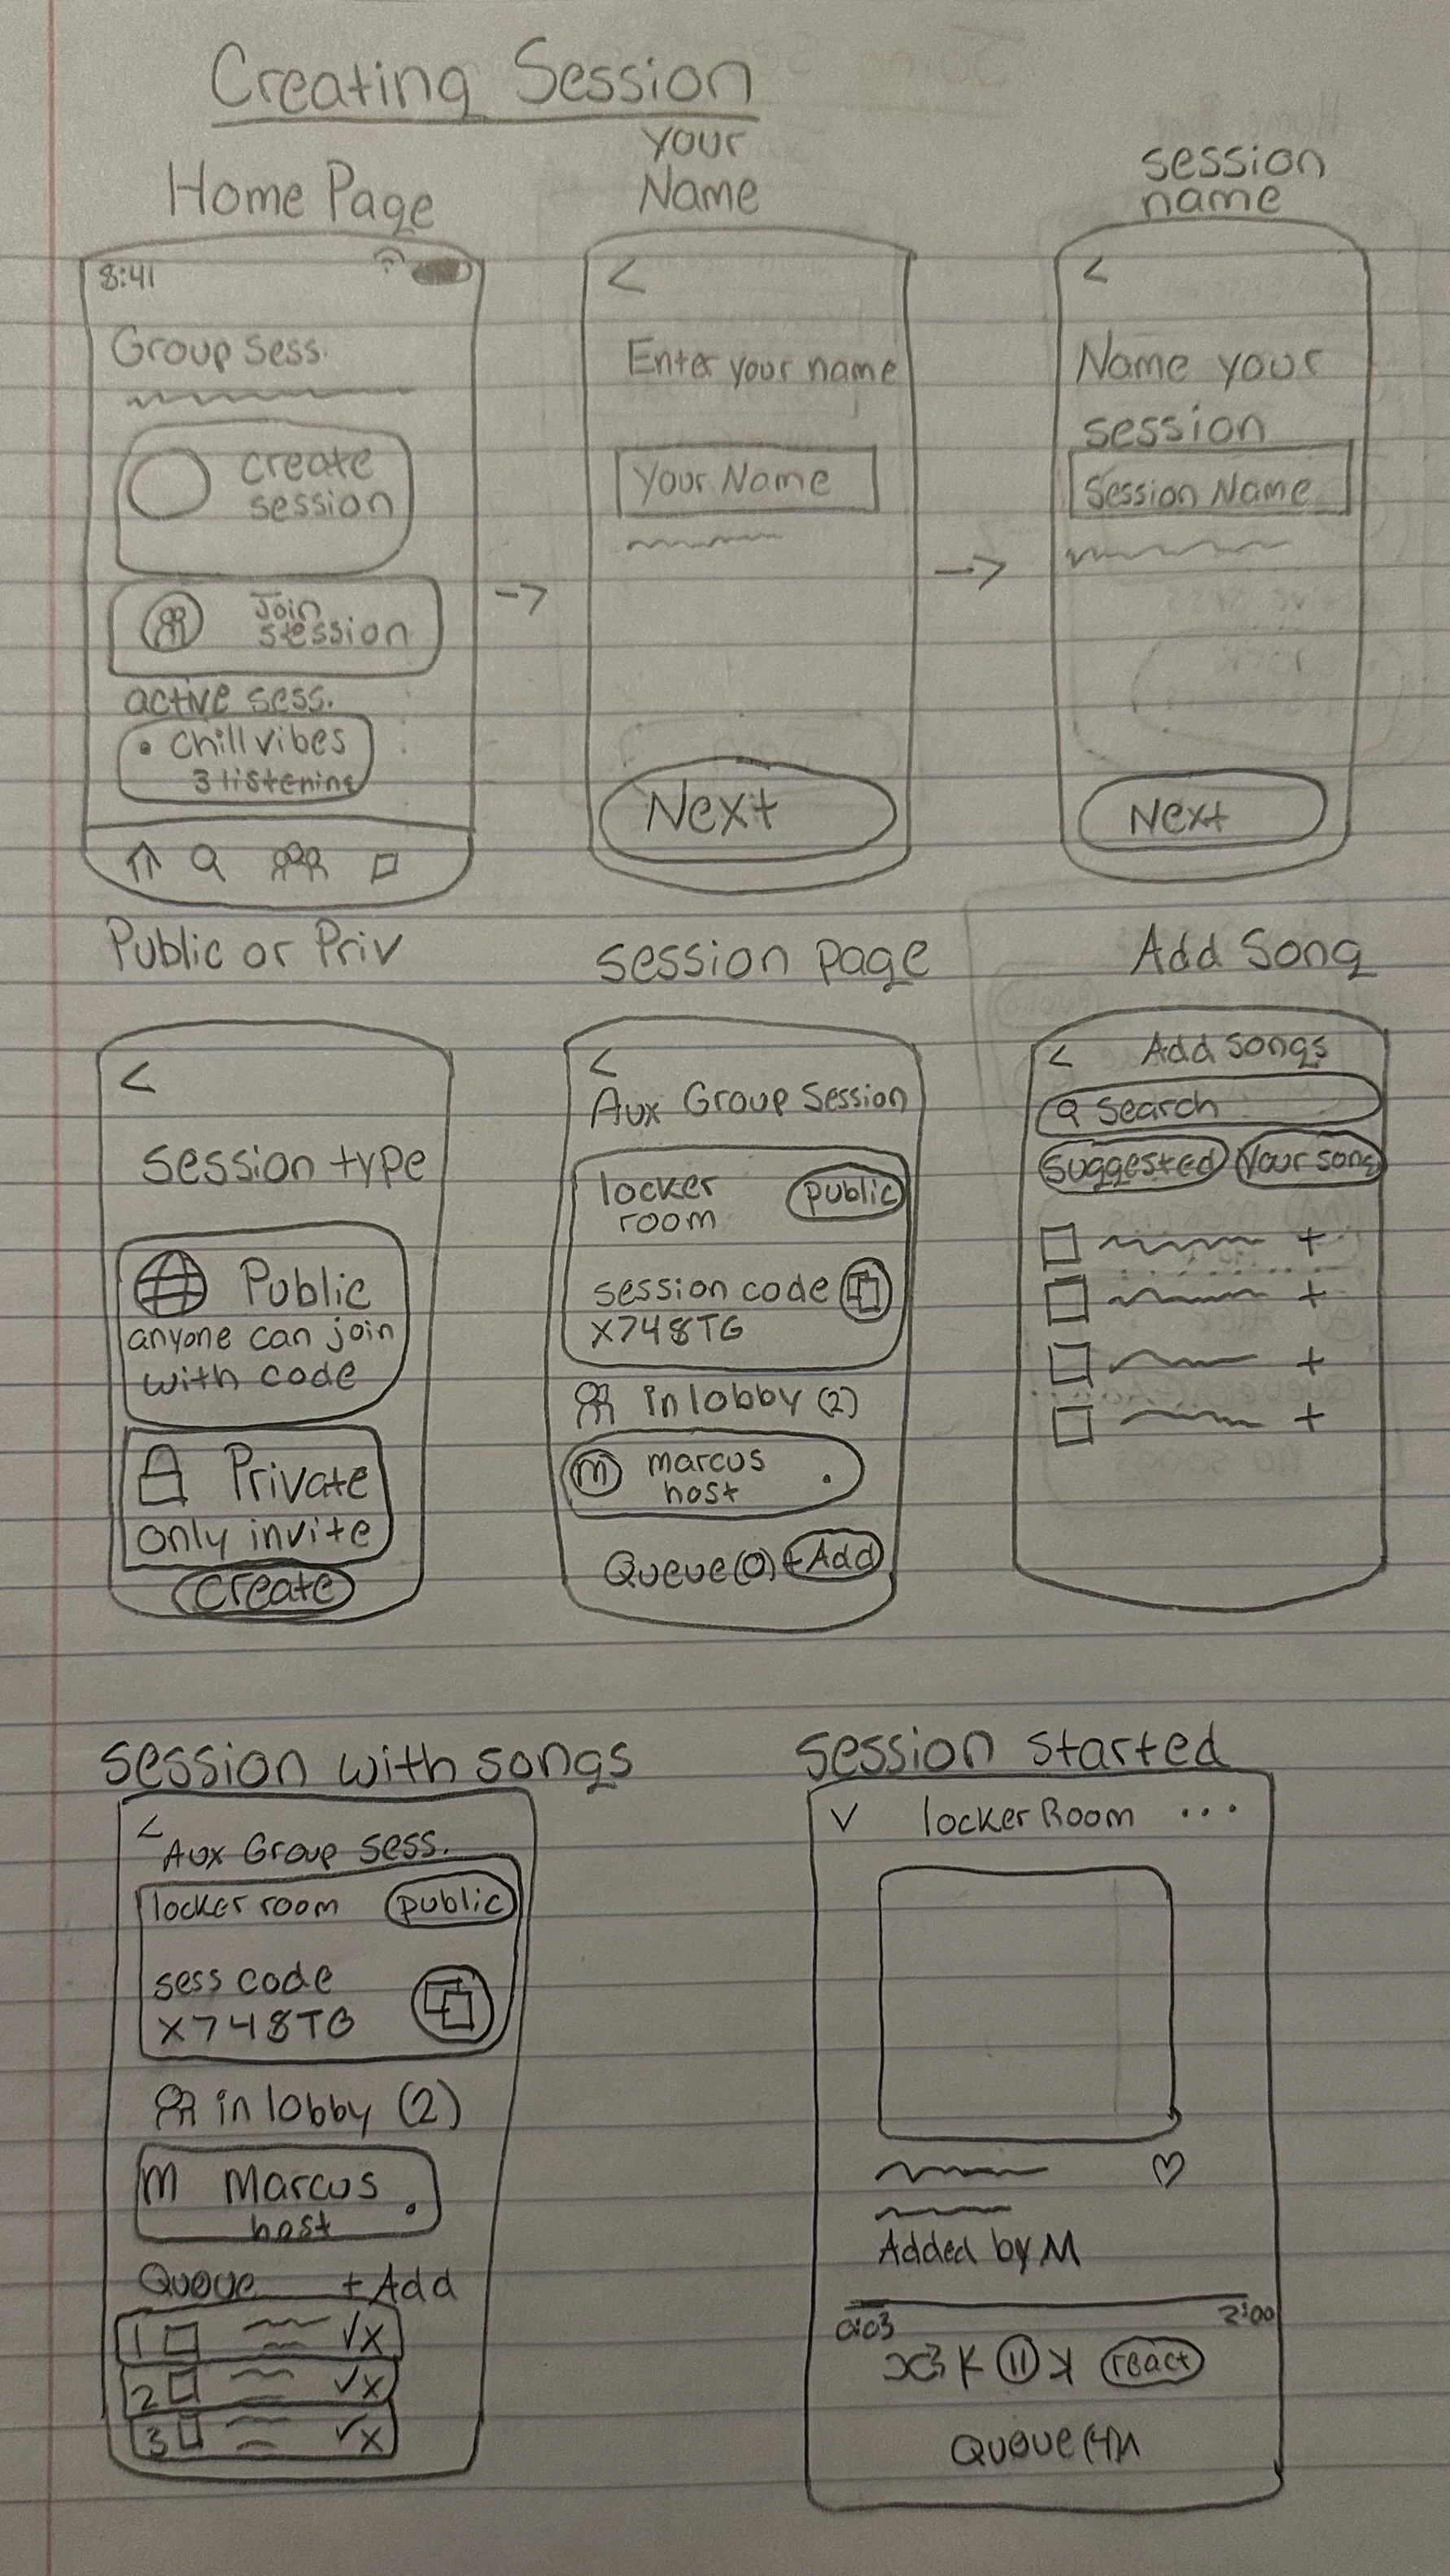 Creating Session
Home Page
8:41
Group sess.
create
session
Join
session
active sess.
• chill vibes
3 listening
your
Name
<
Enter your name
Your Name
Next
session
name
<
Name your
session
Session Name
Next
Public or Priv
<
session type
Public
anyone can join
with code
Private
only invite
create
session page
<
Aux Group Session
locker
room
public
session code
X748TG
in lobby (2)
m
marcus
host
Queue (0) + Add
Add Song
< Add songs
search
suggested
Your song
+
+
+
+
session with songs
<
Aux Group sess.
locker room
public
sess code
X748TG
in lobby (2)
m Marcus
host
Queue + Add
1 ✓x
2 ✓x
3 ✓x
session started
locker Room ...
Added by M
0:03
2:00
react
Queue (4)